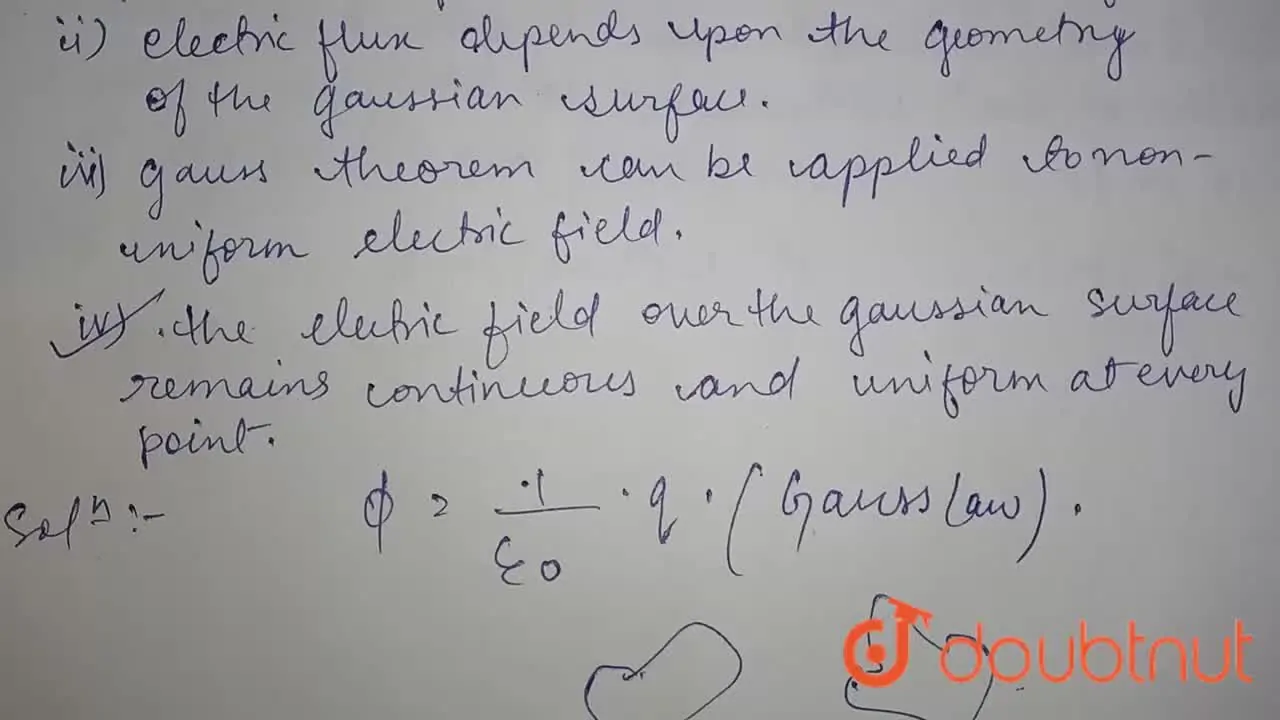 ii) electric flux depends upon the geometry
of the gaussian surface.
iii) gauss theorem can be applied to non-
uniform electric field.
iv) . the electric field over the gaussian surface
remains continuous and uniform at every
point.
Solⁿ :- ϕ = 1/ε0 . q . (Gauss law) .
doubtnut